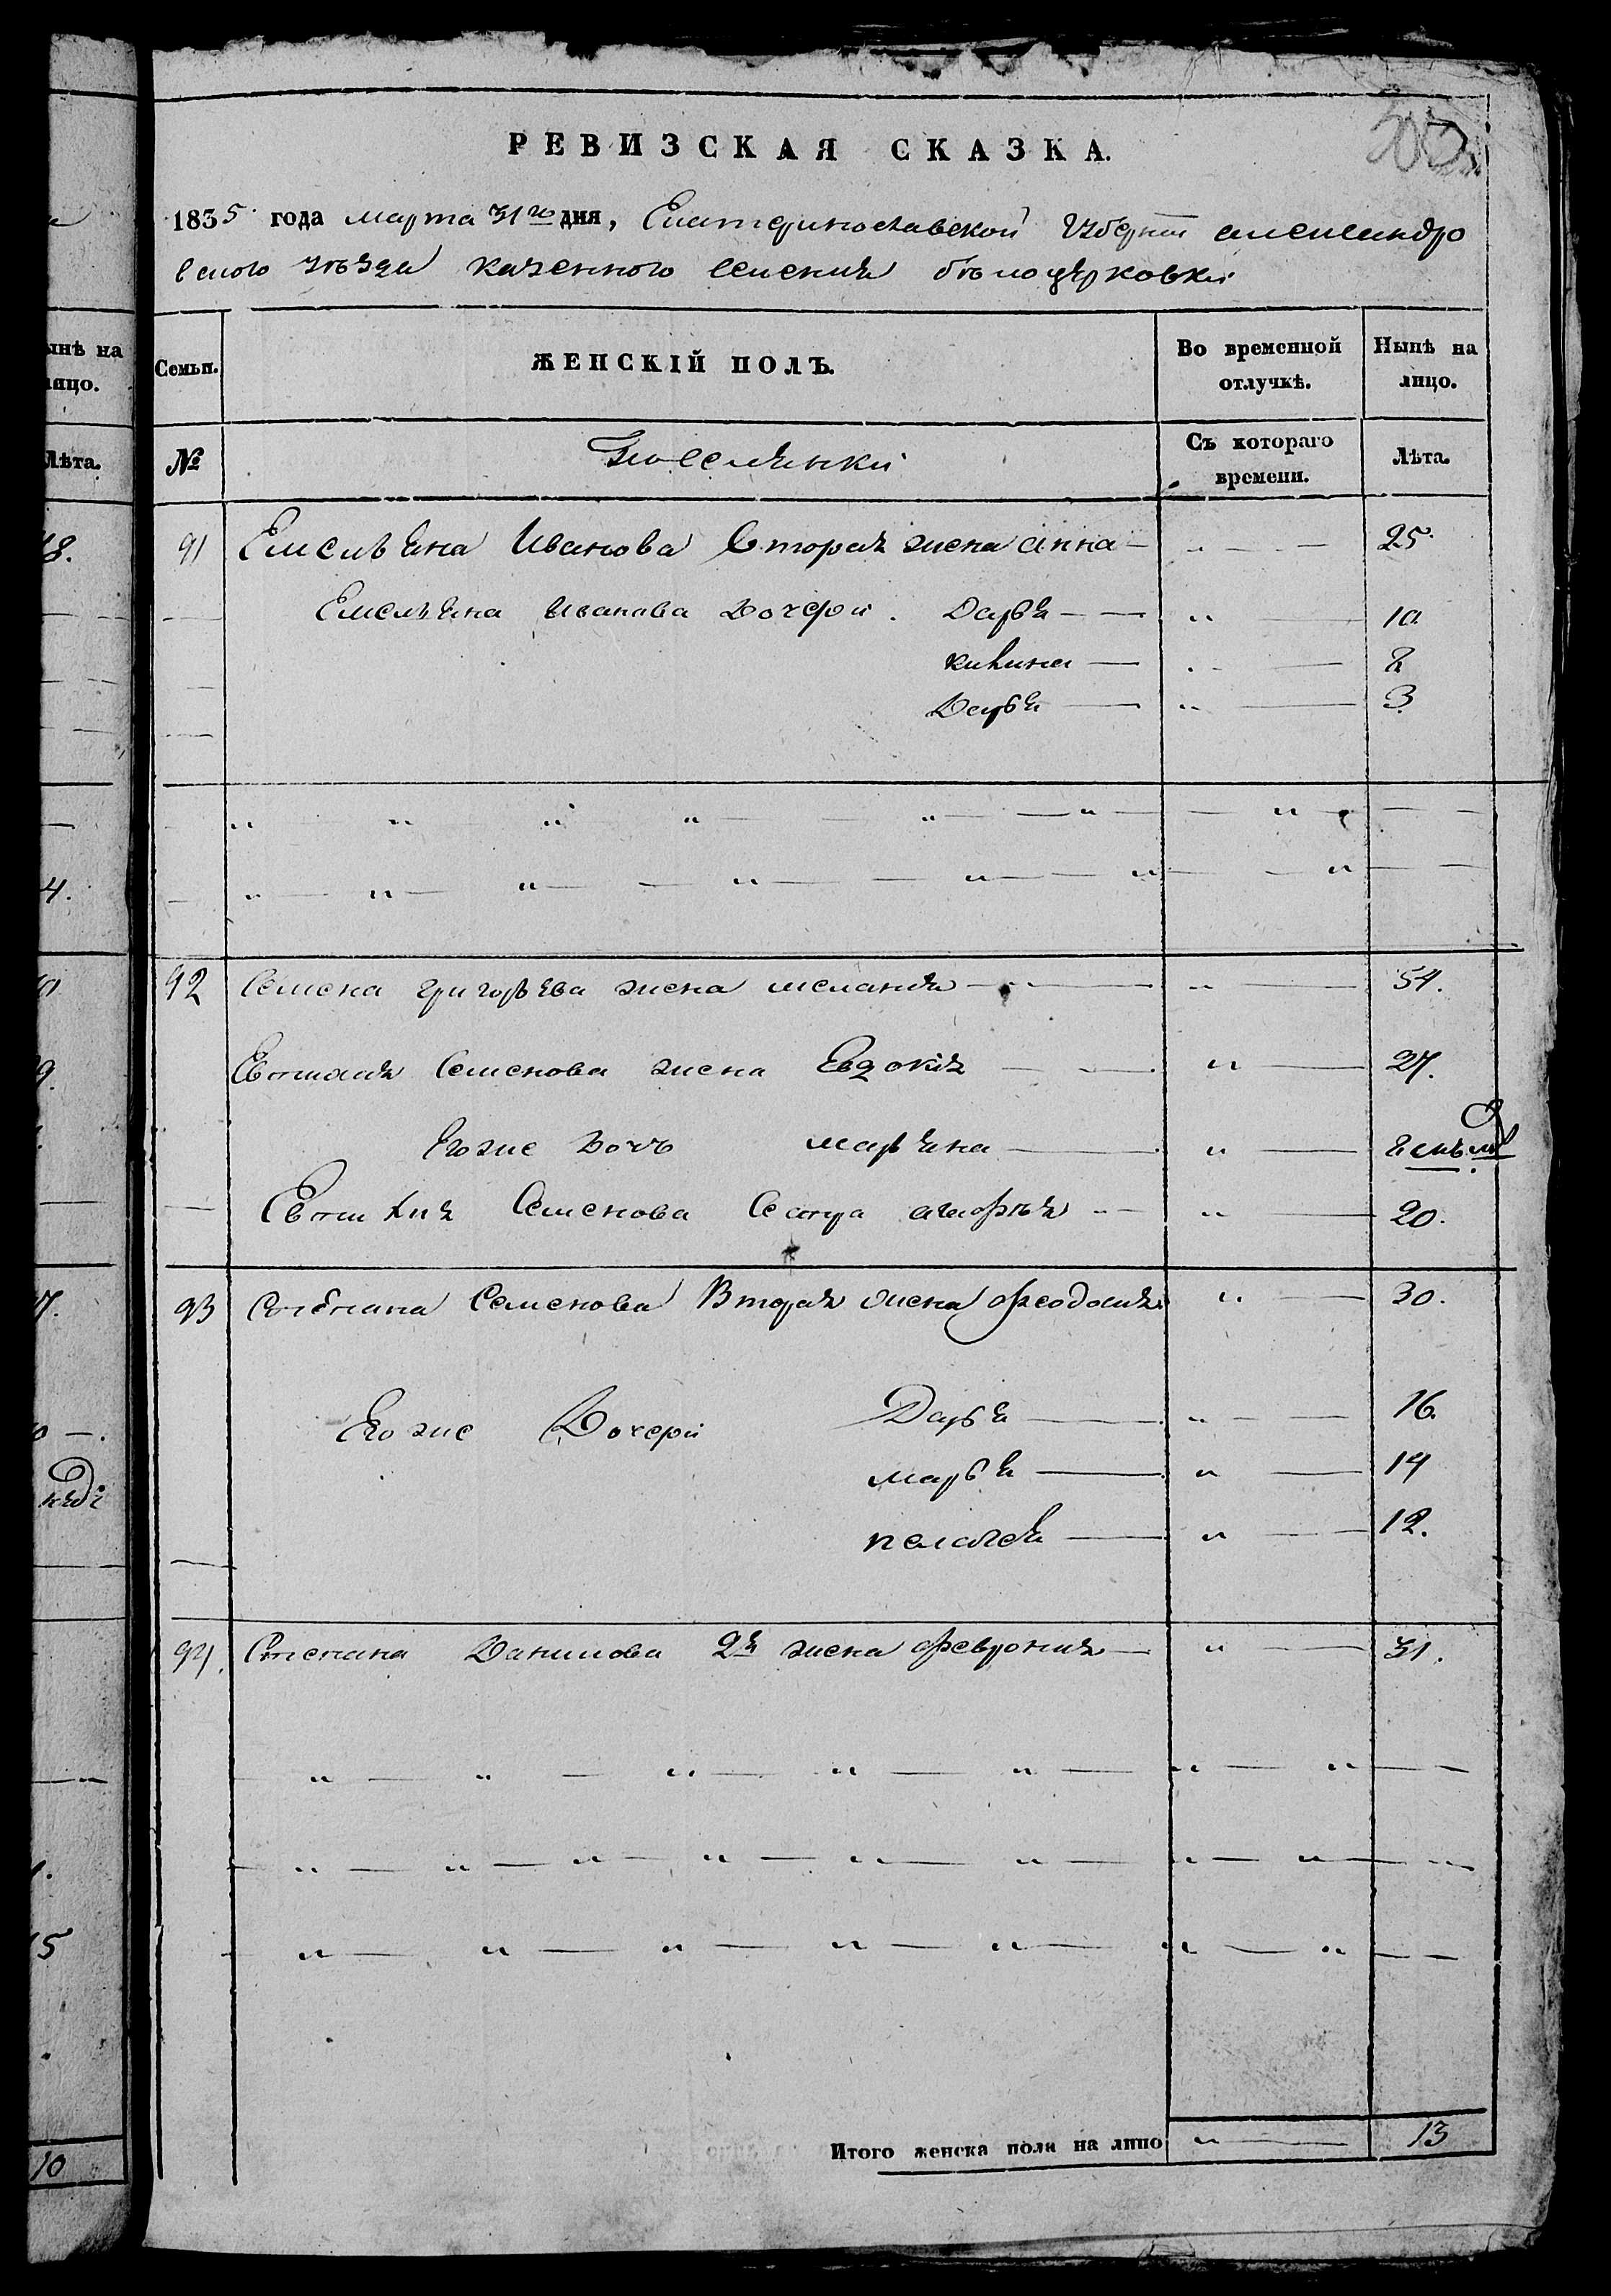 РЕВИЗСКАЯ СКАЗКА.
1835 года марта 31го дня, Екатеринославской Губерніи александро
вского уѣзда казенного селения бѣлоцерковки
ынѣ на
лицо.
Семьи.
ЖЕНСКІЙ ПОЛЪ.
Во временной
отлучкѣ.
Нынѣ на
лицо.
Лѣта.
№
Поселянки
Съ котораго
времени.
Лѣта.
91 Емельяна Иванова Вторая жена анна 25.
Емельяна Иванова дочери. Дарья 10.
3
92 Семена григорьева жена мелания 54.
Семенова жена Евдокия 27.
Его же дочь марьяна
Семенова Сестра 20.
93 Степана Семенова Вторая жена феодосия 30.
Его же Дочери Дарья 16.
марья 14
пелагея 12.
94. Степана Данилова 2я жена феврония 31.
Итого женска пола на лицо 13
10